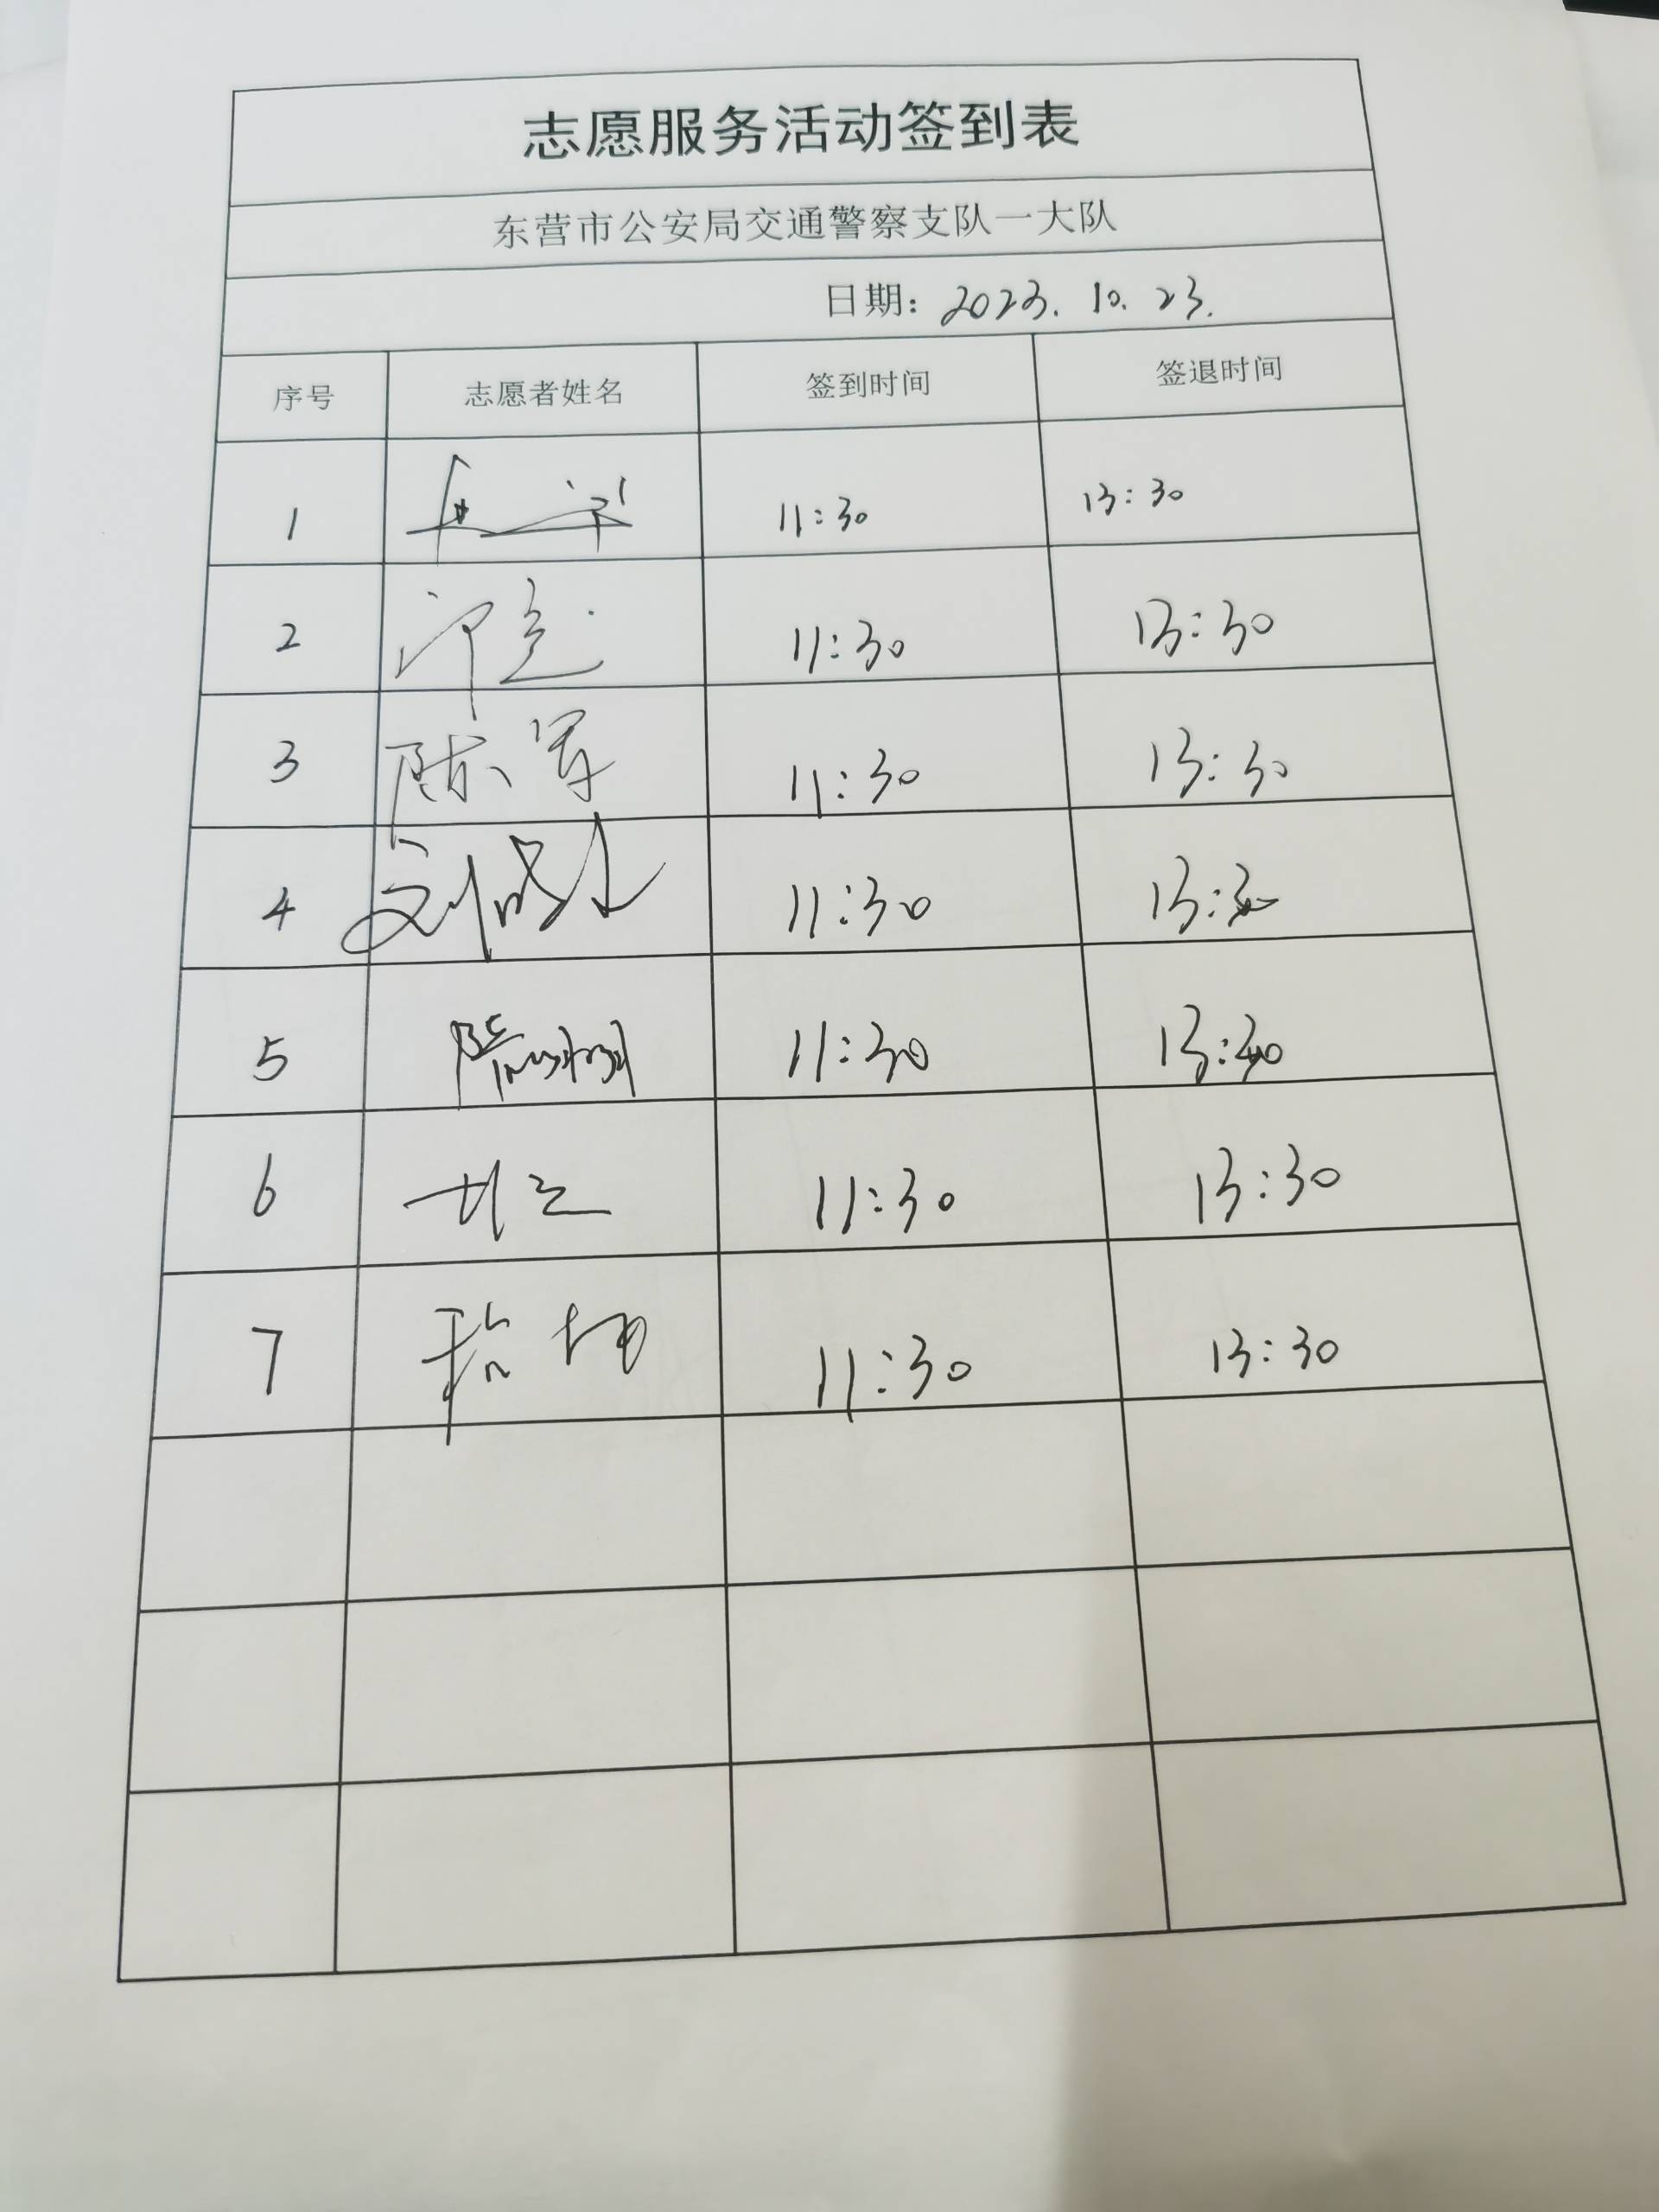 志愿服务活动签到表
东营市公安局交通警察支队一大队
日期：2023.10.23.
序号 志愿者姓名 签到时间 签退时间
1 11:30 13:30
2 11:30 13:30
3 陈军 11:30 13:30
4 刘 11:30 13:30
5 11:30 13:30
6 11:30 13:30
7 11:30 13:30